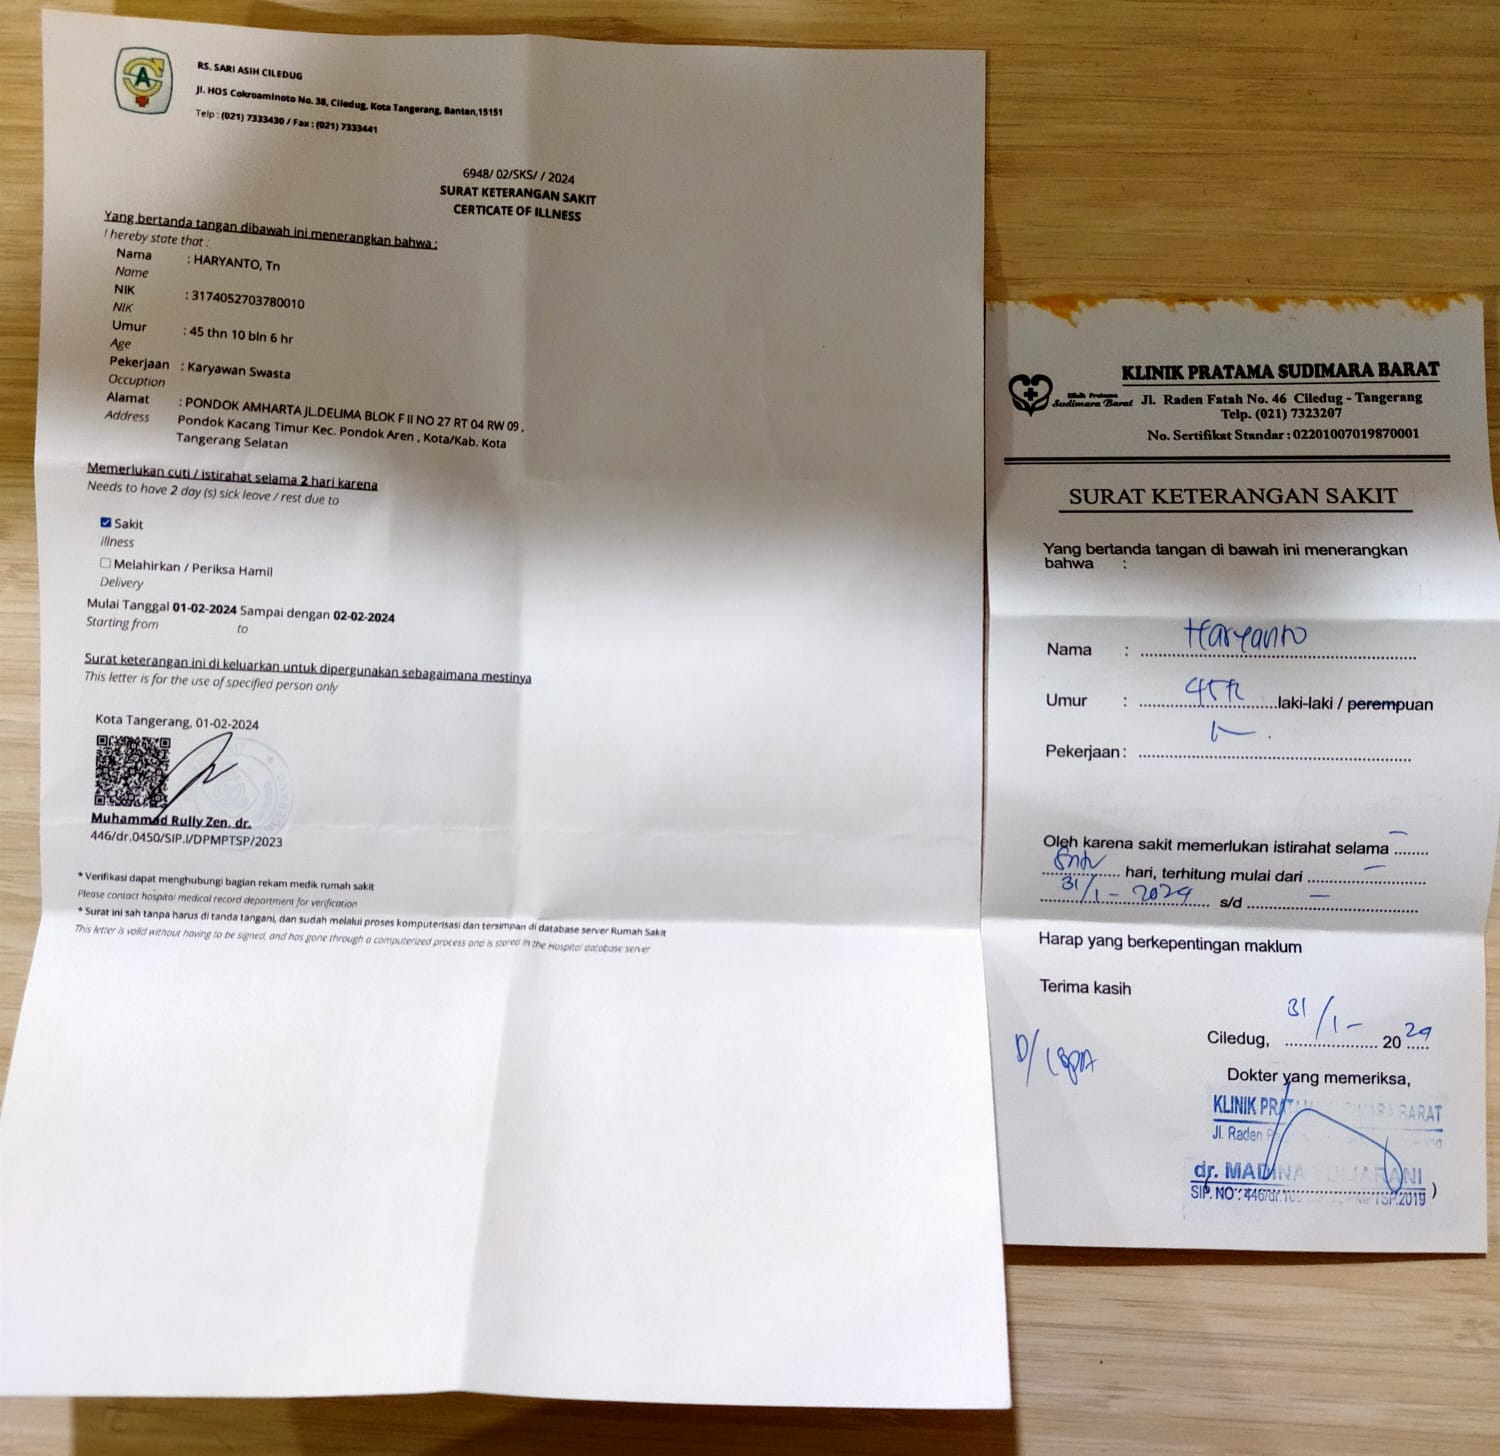 RS. SARI ASIH CILEDUG
Jl. HOS Cokroaminoto No. 38, Ciledug, Kota Tangerang, Banten,15151
Telp : (021) 7333430 / Fax : (021) 7333441
6948/ 02/SKS/ / 2024
SURAT KETERANGAN SAKIT
CERTICATE OF ILLNESS
Yang bertanda tangan dibawah ini menerangkan bahwa :
I hereby state that :
Nama : HARYANTO, Tn
Name
NIK : 3174052703780010
NIK
Umur : 45 thn 10 bln 6 hr
Age
Pekerjaan : Karyawan Swasta
Occuption
Alamat : PONDOK AMHARTA JL.DELIMA BLOK F II NO 27 RT 04 RW 09 ,
Address Pondok Kacang Timur Kec. Pondok Aren , Kota/Kab. Kota
Tangerang Selatan
Memerlukan cuti / istirahat selama 2 hari karena
Needs to have 2 day (s) sick leave / rest due to
Sakit
Illness
Melahirkan / Periksa Hamil
Delivery
Mulai Tanggal 01-02-2024 Sampai dengan 02-02-2024
Starting from to
Surat keterangan ini di keluarkan untuk dipergunakan sebagaimana mestinya
This letter is for the use of specified person only
Kota Tangerang, 01-02-2024
Muhammad Rully Zen, dr.
446/dr.0450/SIP.I/DPMPTSP/2023
* Verifikasi dapat menghubungi bagian rekam medik rumah sakit
Please contact hospital medical record department for verification
* Surat ini sah tanpa harus di tanda tangani, dan sudah melalui proses komputerisasi dan tersimpan di database server Rumah Sakit
This letter is valid without having to be signed, and has gone through a computerized process and is stored in the Hospital database server
KLINIK PRATAMA SUDIMARA BARAT
Klinik Pratama
Sudimara Barat
Jl. Raden Fatah No. 46 Ciledug - Tangerang
Telp. (021) 7323207
No. Sertifikat Standar : 02201007019870001
SURAT KETERANGAN SAKIT
Yang bertanda tangan di bawah ini menerangkan
bahwa :
Nama : Haryanto
Umur : 45 laki-laki / perempuan
Pekerjaan :
Oleh karena sakit memerlukan istirahat selama ........
hari, terhitung mulai dari
31/1 - 2024 s/d
Harap yang berkepentingan maklum
Terima kasih
Ciledug, 31/1 - 2024
D/ ISPA
Dokter yang memeriksa,
KLINIK PRATAMA SUDIMARA BARAT
Jl. Raden
dr. MADINA YULIARANI
SIP. NO : 446/dr.